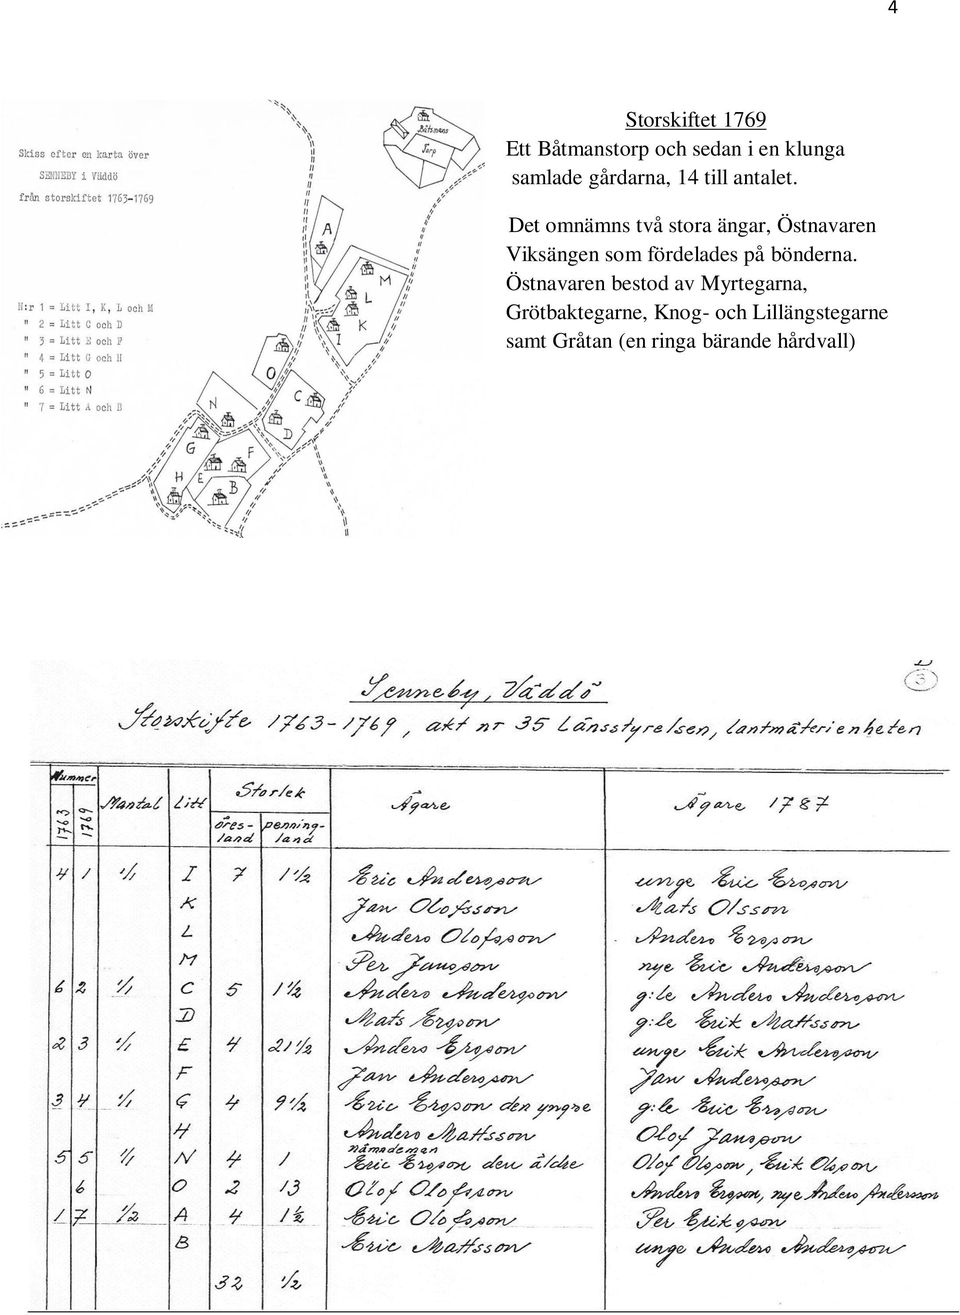 4
Storskiftet 1769
Ett Båtmanstorp och sedan i en klunga
samlade gårdarna, 14 till antalet.
Det omnämns två stora ängar, Östnavaren
Viksängen som fördelades på bönderna.
Östnavaren bestod av Myrtegarna,
Grötbaktegarne, Knog- och Lillängstegarne
samt Gråtan (en ringa bärande hårdvall)
Skiss efter en karta över
SENNEBY i Väddö
från storskiftet 1763-1769
N:r 1 = Litt I, K, L och M
" 2 = Litt C och D
" 3 = Litt E och F
" 4 = Litt G och H
" 5 = Litt O
" 6 = Litt N
" 7 = Litt A och B
Båtsmans
Torp
A
M
L
K
I
O
C
N
D
G
F
H E
B
3
Senneby, Väddö
Storskifte 1763-1769, akt nr 35 Länsstyrelsen, lantmäterienheten
Nummer
1763 1769 Mantal Litt Storlek Ägare Ägare 1787
öres-land penning-land
4 1 1/1 I 7 1 1/2 Eric Andersson unge Eric Ersson
K Jan Olofsson Mats Olsson
L Anders Olofsson Anders Ersson
M Per Jansson nye Eric Andersson
6 2 1/1 C 5 1 1/2 Anders Andersson g:le Anders Andersson
D Mats Ersson g:le Erik Mattsson
2 3 1/1 E 4 21 1/2 Anders Ersson unge Erik Andersson
F Jan Andersson Jan Andersson
3 4 1/1 G 4 9 1/2 Eric Ersson den yngre g:le Eric Ersson
H Anders Mattsson Olof Jansson
nämndeman
5 5 1/1 N 4 1 Eric Ersson den äldre Olof Olsson, Erik Olsson
6 O 2 13 Olof Olofsson Anders Ersson, nye Anders Andersson
1 7 1/2 A 4 1 1/2 Eric Olofsson Per Eriksson
B Eric Mattsson unge Anders Andersson
32 1/2